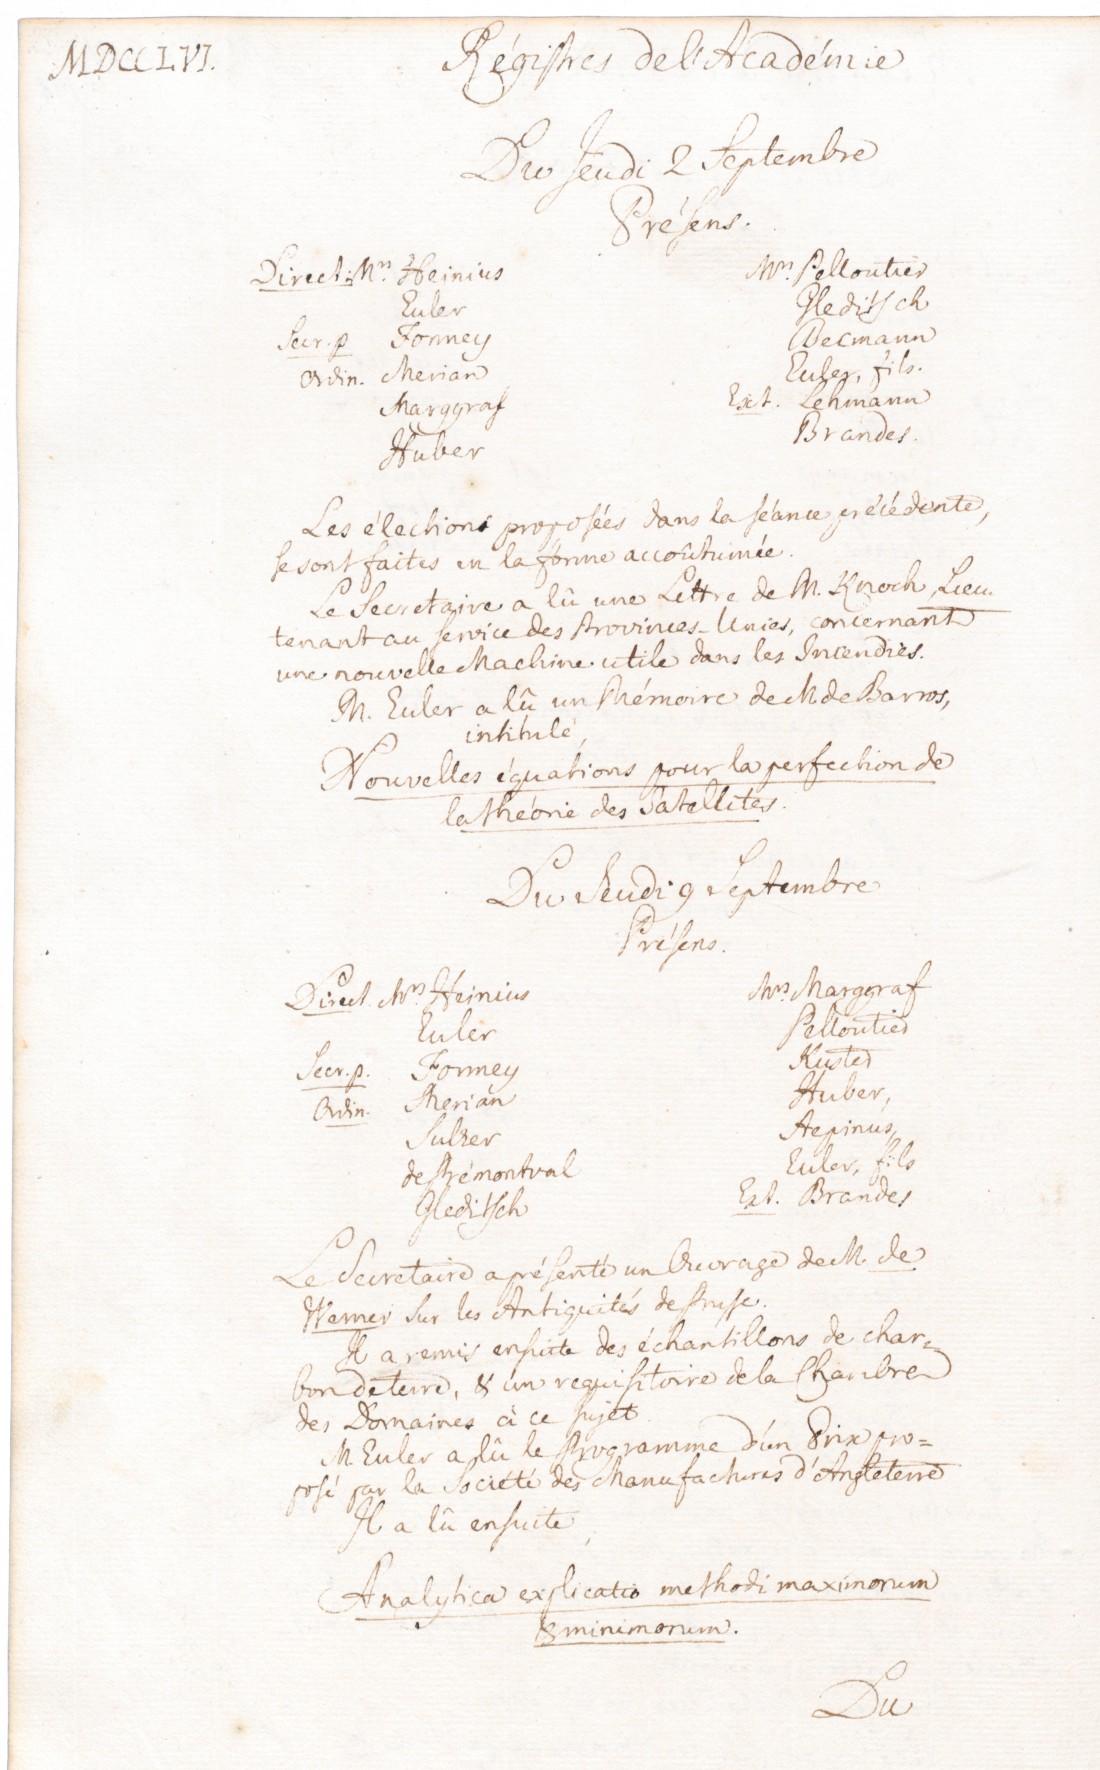 MDCCLVI.
Régistres de l'Académie
Du Jeudi 2 Septembre
Présens.
Direct. Mrs. Heinius
Euler
Secr. p. Formey
Ordin. Merian
Marggraf
Huber
Mrs. Pelloutier
Gleditsch
Becmann
Euler, fils.
Ext. Lehmann
Brandes.
Les élections proposées dans la séance précédente,
se sont faites en la forme accoûtumée.
Le Secretaire a lû une Lettre de M. Knoch, Lieu-
tenant au service des Provinces-Unies, concernant
une nouvelle Machine utile dans les Incendies.
M. Euler a lû un Mémoire de M. de Barros,
intitulé,
Nouvelles équations pour la perfection de
la théorie des Satellites.
Du Jeudi 9 Septembre
Présens.
Direct. Mrs. Heinius
Euler
Secr. p. Formey
Ordin. Merian
Sulzer
de Prémontval
Gleditsch
Mrs Marggraf
Pelloutier
Kuster
Huber,
Aepinus,
Euler, fils
Ext. Brandes
Le Secretaire a présenté un Ouvrage de M. de
Werner sur les Antiquités de Prusse.
Il a remis ensuite des échantillons de char=
bon de terre, & un requisitoire de la Chambre
des Domaines à ce sujet.
M Euler a lû le Programme d'un Prix pro=
posé par la Société des Manufactures d'Angleterre
Il a lû ensuite,
Analytica explicatio methodi maximorum
& minimorum.
Du